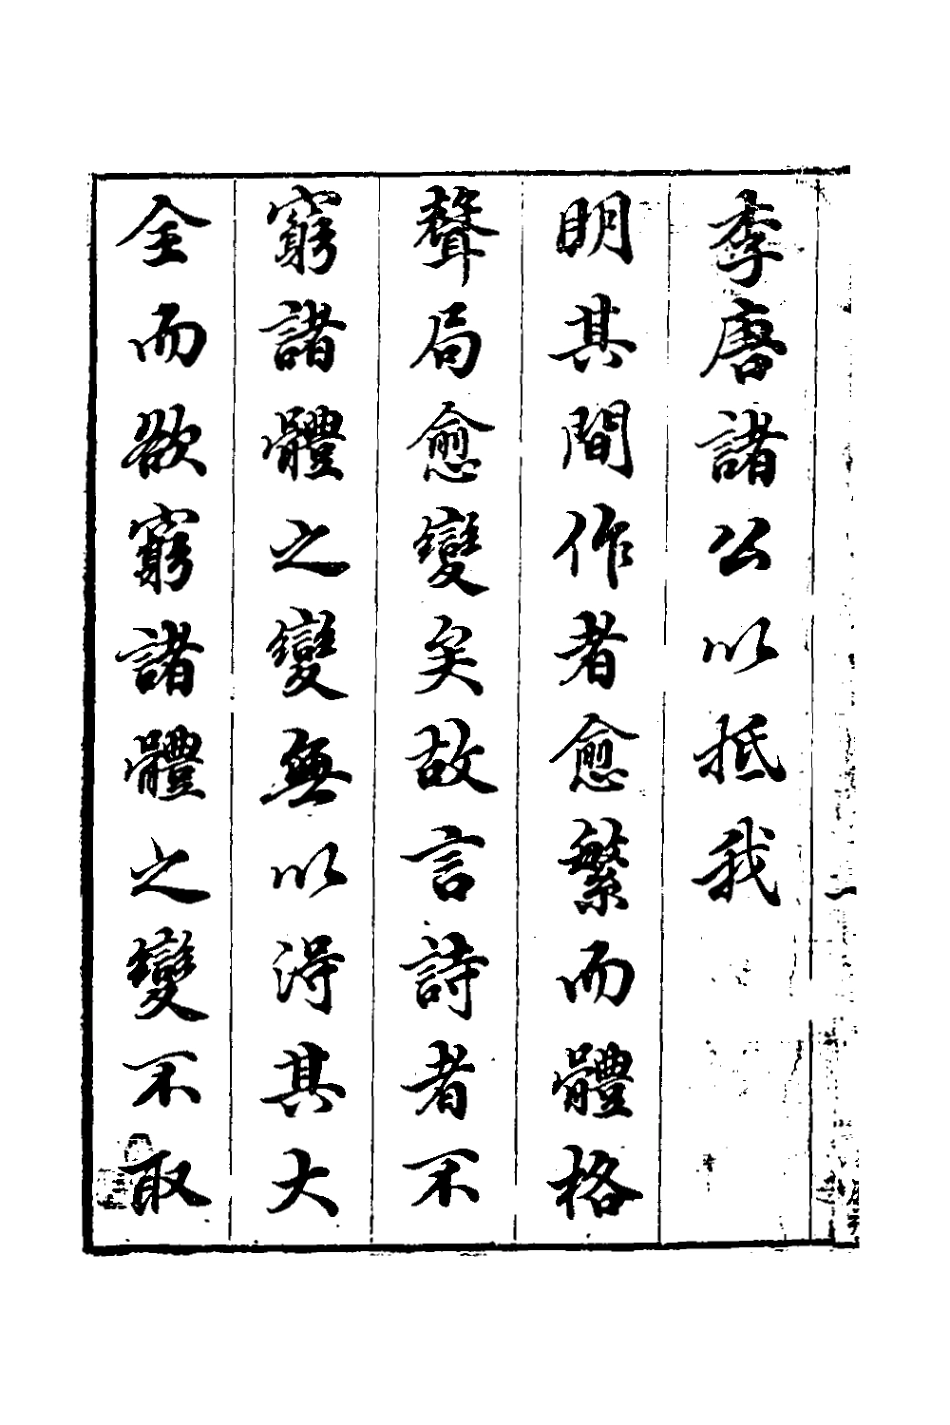 李唐諸公以抵我
明其間作者愈繁而體格
聲局愈變矣故言詩者不
窮諸體之變無以得其大
全而欲窮諸體之變不取